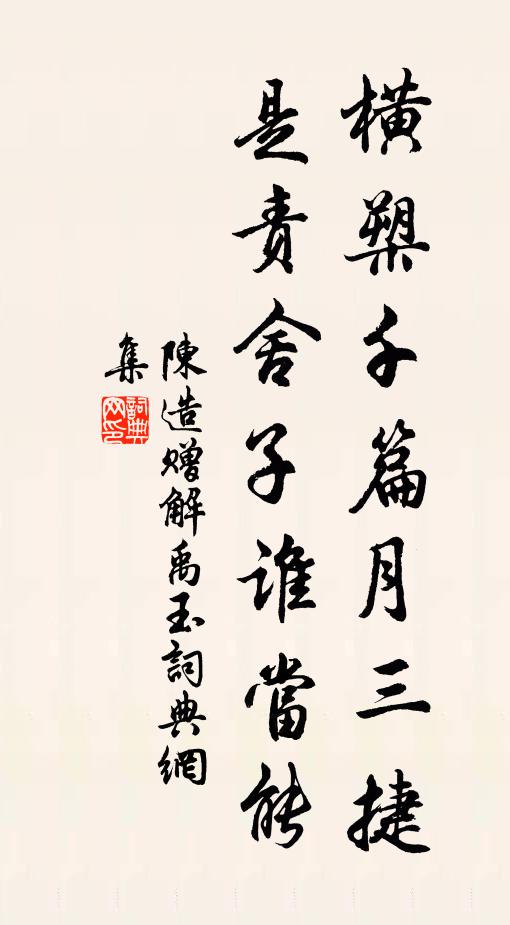 橫槊千篇月三捷
是責舍子誰當能
陳造贈解禹玉詞典網
集
詞典網印